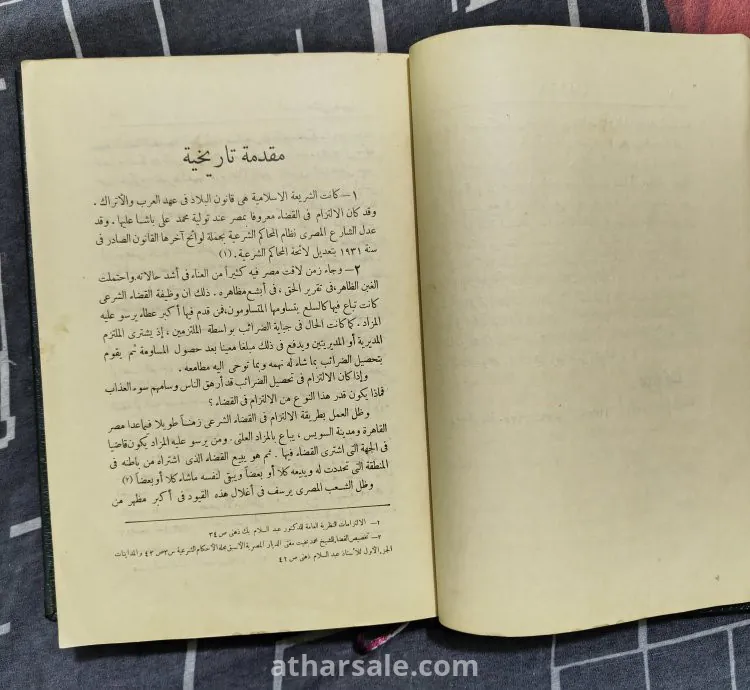 مقدمة تاريخية
١ — كانت الشريعة الاسلامية هى قانون البلاد فى عهد العرب والأتراك .
وقد كان الالتزام فى القضاء معروفا بمصر عند تولية محمد على باشا عليها . وقد
عدل الشارع المصرى نظام المحاكم الشرعية بجملة لوائح آخرها القانون الصادر فى
سنة ١٩٣١ بتعديل لائحة المحاكم الشرعية . (١)
٢ — وجاء زمن لاقت مصر فيه كثيراً من العناء فى أشد حالاته، واحتملت
الغبن الظاهر، فى تقرير الحق ، فى أبشع مظاهره . ذلك ان وظيفة القضاء الشرعى
كانت تباع فيها كالسلع يتساومها المتساومون، فمن قدم فيها أكبر عطاء يرسو عليه
المزاد . كما كانت الحال فى جباية الضرائب بواسطة الملتزمين ، إذ يشترى الملتزم
المديرية أو المديريتين ويدفع فى ذلك مبلغا معينا بعد حصول المساومة ثم يقوم
بتحصيل الضرائب بما شاء له نهمه وبما توحى اليه مطامعه .
وإذا كان الالتزام فى تحصيل الضرائب قد أرهق الناس وسامهم سوء العذاب
فماذا يكون قدر هذا النوع من الالتزام فى القضاء ؟
وظل العمل بطريقة الالتزام فى القضاء الشرعى زمناً طويلا فيما عدا مصر
القاهرة ومدينة السويس ، يباع بالمزاد العلنى . ومن يرسو عليه المزاد يكون قاضيا
فى الجهة التى اشترى القضاء فيها . ثم هو يبيع القضاء الذى اشتراه من باطنه فى
المنطقة التى تحددت له ويبيعه كلا أو بعضاً ويبقى لنفسه ماشاء كلا أو بعضاً (٢)
وظل الشعب المصرى يرسف فى أغلال هذه القيود فى أكبر مظهر من
١ — الالتزامات النظرية العامة للدكتور عبد السلام بك ذهنى ص ٣٤
٢ — تخصيص القضا للشيخ محمد بخيت مفتى الديار المصرية الأسبق مجلة الأحكام الشرعية س ٣ ص ٤٣ والمداينات
الجزء الأول للأستاذ عبد السلام ذهنى ص ٤٢
atharsale.com